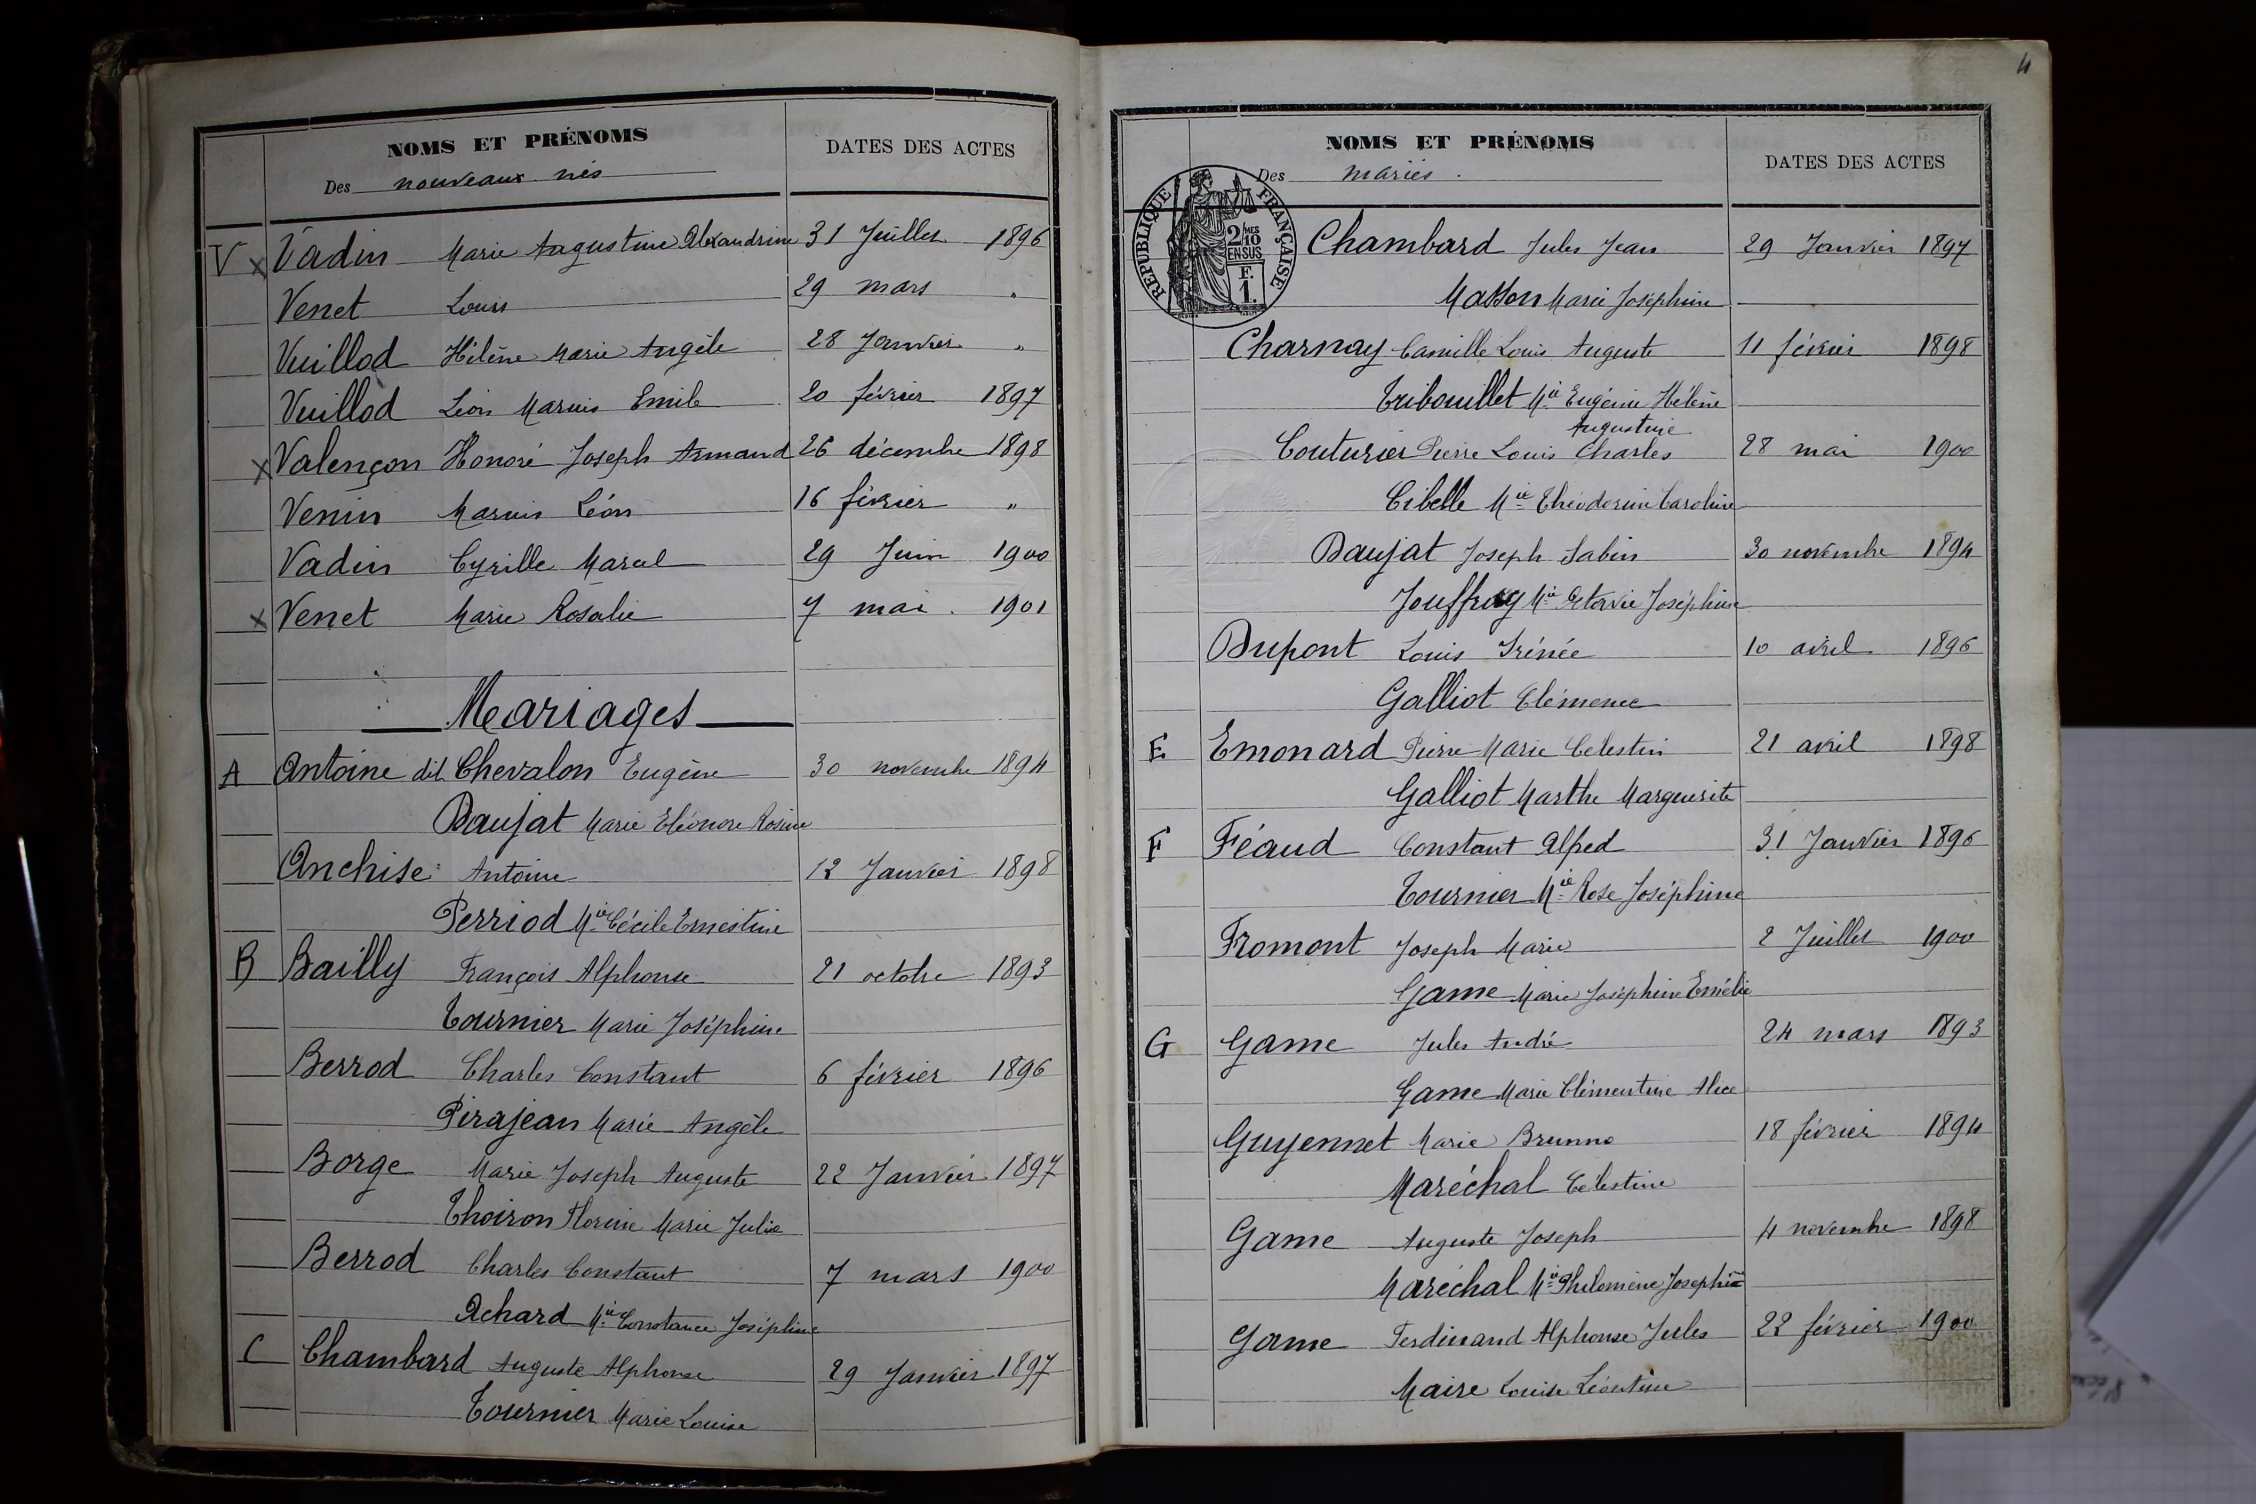 NOMS ET PRÉNOMS
Des nouveaux nés
DATES DES ACTES
V x Vadin Marie Augustine Alexandrine 31 Juillet 1896
Venet Louis 29 mars "
Vuillod Hélène Marie Angèle 28 Janvier "
Vuillod Léon Marius Emile 20 février 1897
x Valençon Honoré Joseph Armand 26 décembre 1898
Venin Marius Léon 16 février "
Vadin Cyrille Marcel 29 Juin 1900
x Venet Marie Rosalie 7 mai 1901
Mariages
A Antoine dit Chevalon Eugène 30 novembre 1894
Daujat Marie Eléonore Rosine
Anchise Antoine 12 Janvier 1898
Perriod Mie Cécile Ernestine
B Bailly François Alphonse 21 octobre 1893
Tournier Marie Joséphine
Berrod Charles Constant 6 février 1896
Pirajean Marie Angèle
Borge Marie Joseph Auguste 22 Janvier 1897
Thoiron Florine Marie Julie
Berrod Charles Constant 7 mars 1900
Achard Mie Constance Joséphine
C Chambard Auguste Alphonse 29 Janvier 1897
Tournier Marie Louise
4
NOMS ET PRÉNOMS
Des mariés.
DATES DES ACTES
RÉPUBLIQUE FRANÇAISE
2/10 MES
EN SUS
F.
1.
Chambard Jules Jean 29 Janvier 1897
Masson Marie Joséphine
Charnay Camille Louis Auguste 11 février 1898
Tribouillet Mie Eugénie Hélène
Augustine
Couturier Pierre Louis Charles 28 mai 1900
Cibelle Mie Théodorine Caroline
Daujat Joseph Sabin 30 novembre 1894
Jouffroy Mie Octavie Joséphine
Dupont Louis Irénée 10 avril 1896
Galliot Clémence
E Emonard Pierre Marie Celestin 21 avril 1898
Galliot Marthe Marguerite
F Féaud Constant Alfred 31 Janvier 1896
Tournier Mie Rose Joséphine
Fromont Joseph Marie 2 Juillet 1900
Game Marie Joséphine Emélie
G Game Jules André 24 mars 1893
Game Marie Clémentine Alice
Guyennet Marie Brunno 18 février 1894
Maréchal Célestine
Game Auguste Joseph 4 novembre 1898
Maréchal Mie Philomène Josephine
Game Ferdinand Alphonse Jules 22 février 1900
Maire Louise Léontine